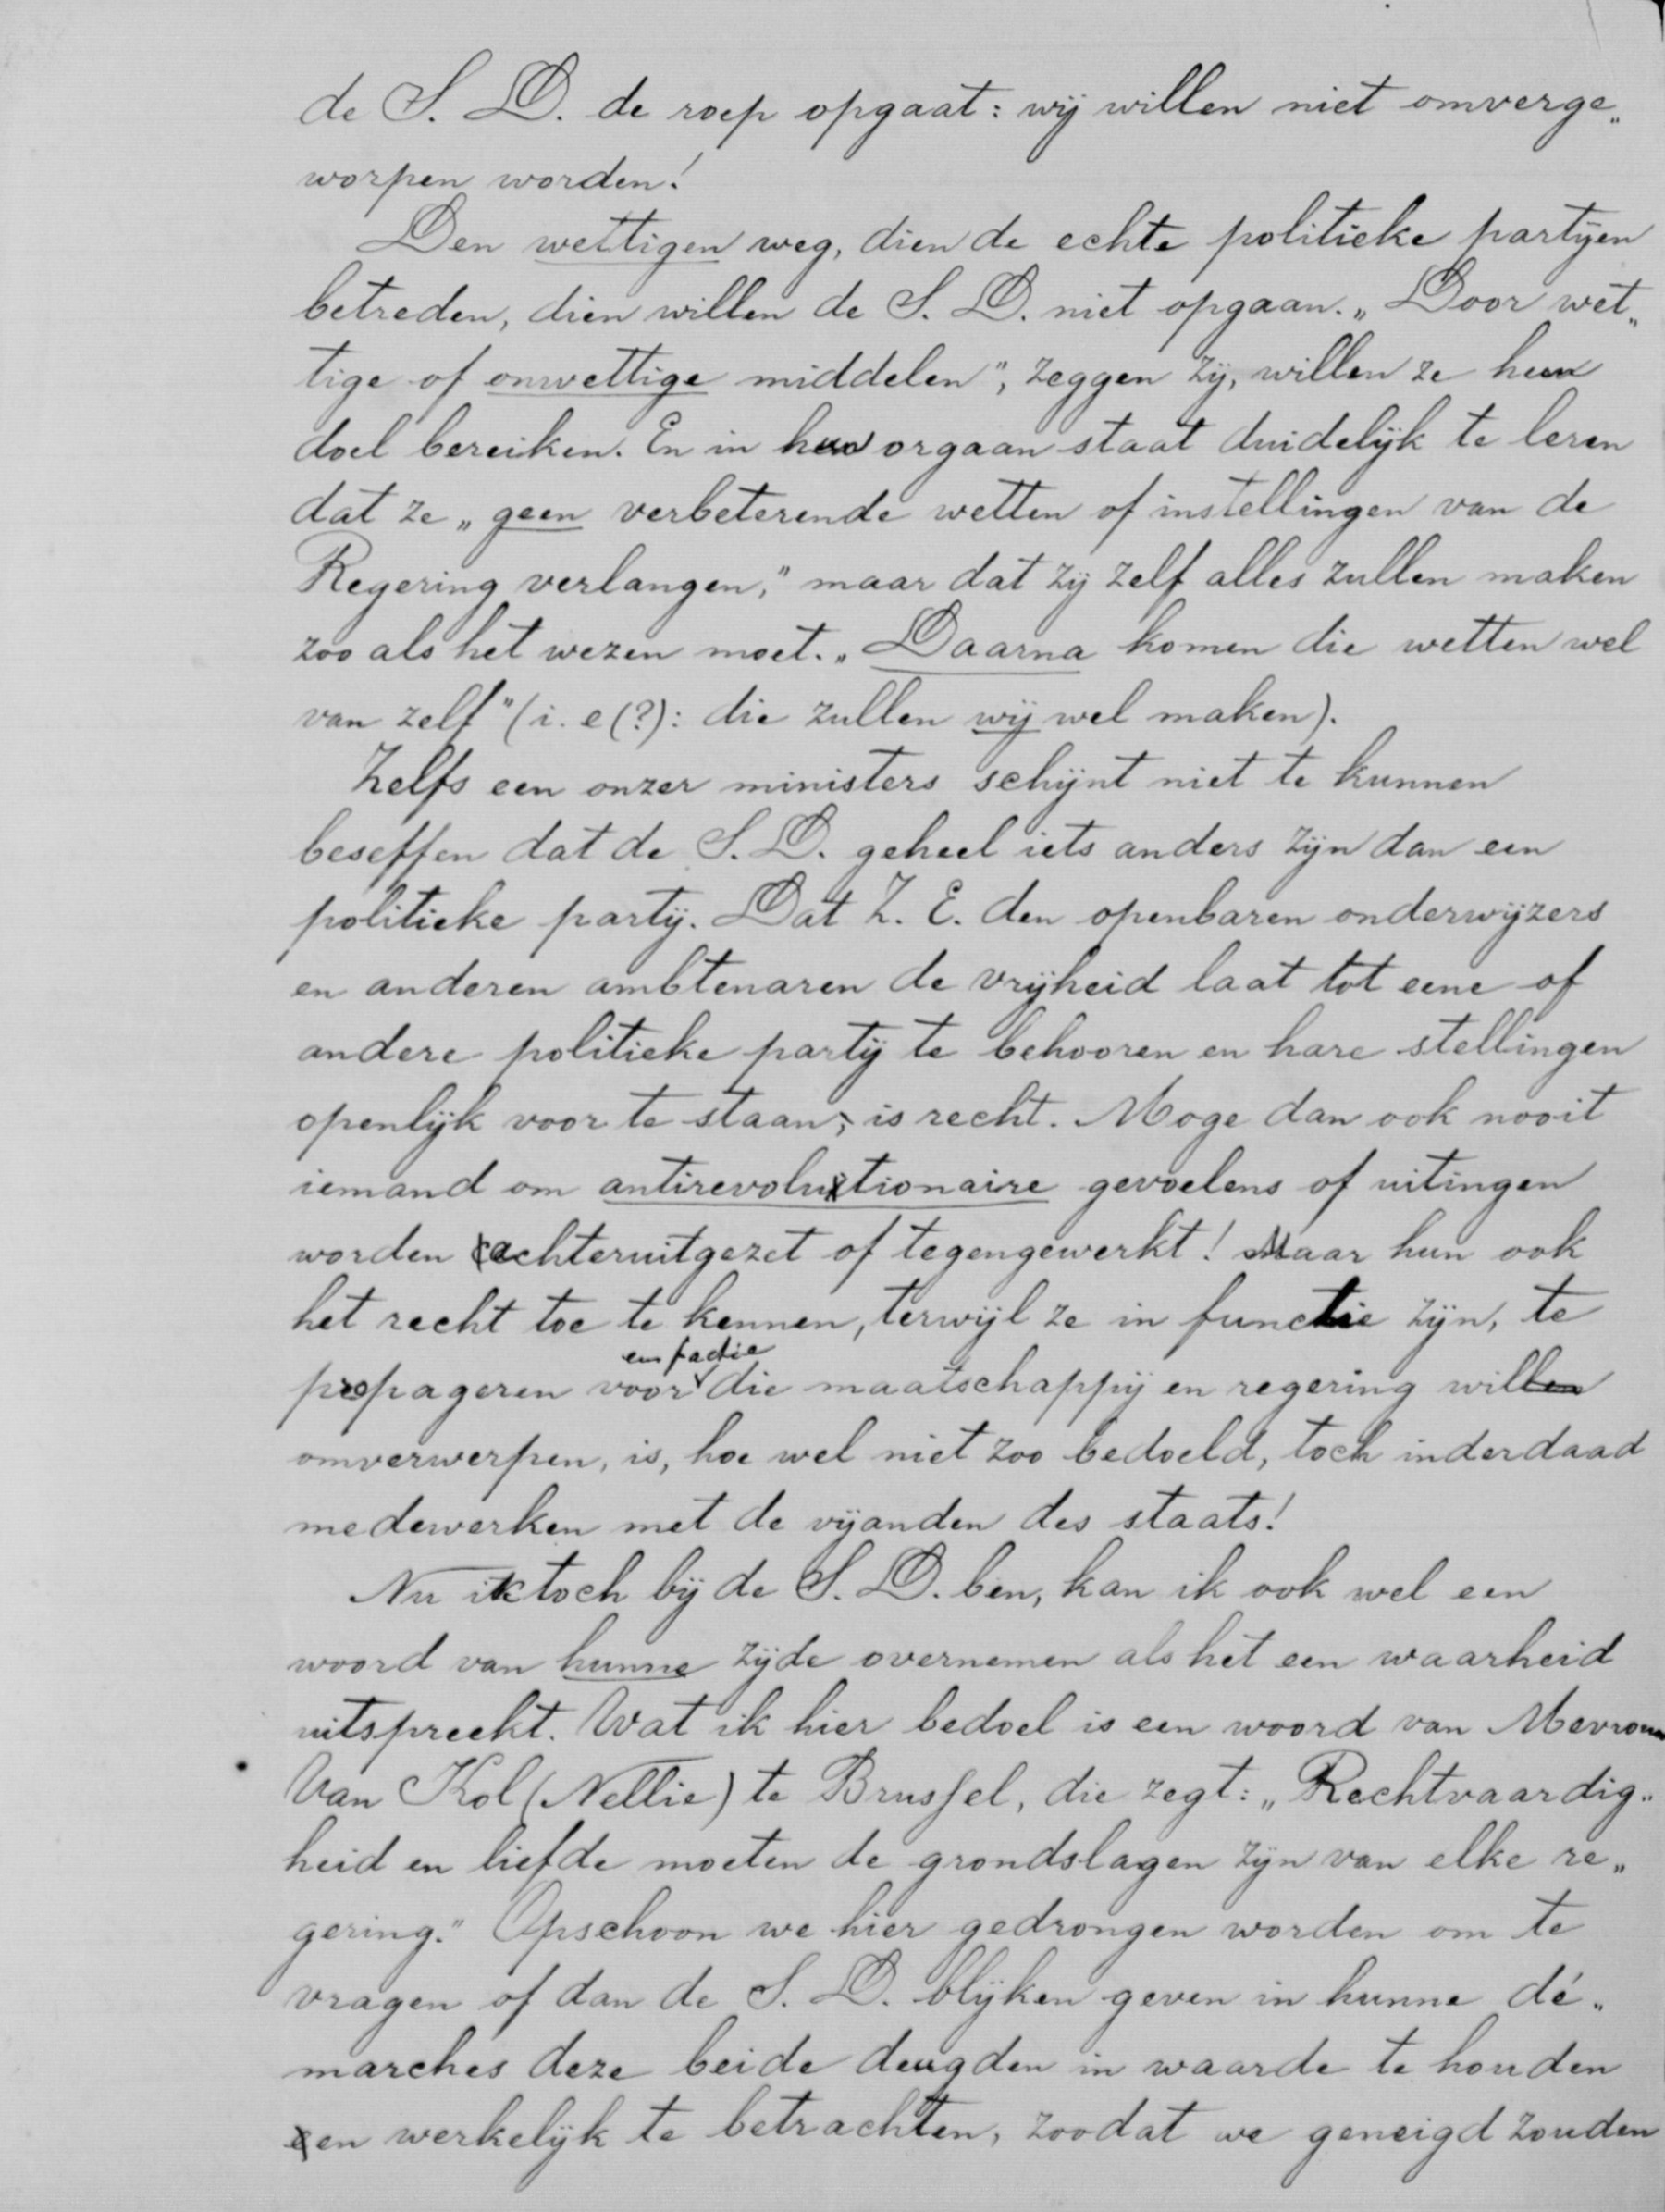 de S. D. de roep opgaat: wij willen niet omverge„
worpen worden!
Den wettigen weg, dien de echte politieke partijen
betreden, dien willen de S. D. niet opgaan. „Door wet„
tige of onwettige middelen", zeggen zij, willen ze hun
doel bereiken. En in hun orgaan staat duidelijk te leren
dat ze „geen verbeterende wetten of instellingen van de
Regering verlangen," maar dat zij zelf alles zullen maken
zoo als het wezen moet. „Daarna komen die wetten wel
van zelf" (i. e (?): die zullen wij wel maken).
Zelfs een onzer ministers schijnt niet te kunnen
beseffen dat de S. D. geheel iets anders zijn dan een
politieke partij. Dat Z. E. den openbaren onderwijzers
en anderen ambtenaren de vrijheid laat tot eene of
andere politieke partij te behooren en hare stellingen
openlijk voor te staan, is recht. Moge dan ook nooit
iemand om antirevolutionaire gevoelens of uitingen
worden achteruitgezet of tegengewerkt! Maar hun ook
het recht toe te kennen, terwijl ze in functie zijn, te
een factie
propageren voor die maatschappij en regering willen
omverwerpen, is, hoe wel niet zoo bedoeld, toch inderdaad
medewerken met de vijanden des staats!
Nu ik toch bij de S. D. ben, kan ik ook wel een
woord van hunne zijde overnemen als het een waarheid
uitspreekt. Wat ik hier bedoel is een woord van Mevrouw
Van Kol (Nellie) te Brussel, die zegt: „Rechtvaardig„
heid en liefde moeten de grondslagen zijn van elke re„
gering." Opschoon we hier gedrongen worden om te
vragen of dan de S. D. blijken geven in hunne dé„
marches deze beide deugden in waarde te houden
en werkelijk te betrachten, zoodat we geneigd zouden